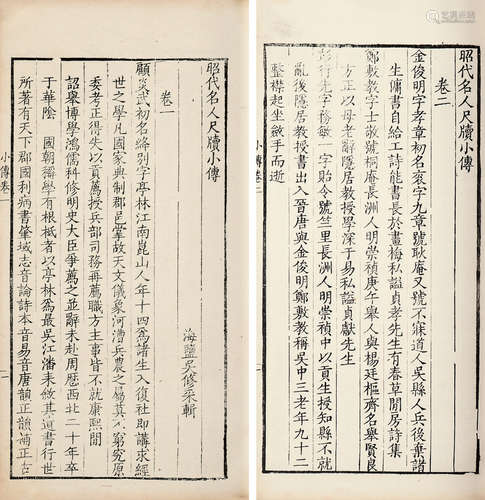 昭代名人尺牘小傳
卷一
海鹽吳修采輯
顧炎武初名絳別字亭林江南崑山人年十四爲諸生入復社即講求經
世之學凡國家典制郡邑掌故天文儀象河漕兵農之屬莫不窮究原
委考正得失以貢薦授兵部司務再薦職方主事皆不就康熙間
詔舉博學鴻儒科修明史大臣爭薦之並辭未赴周歷西北二十年卒
于華陰 國朝辯學有根柢者以亭林爲最吳江潘耒敘其遺書行世
所著有天下郡國利病書肇域志音論詩本音易音唐韻正韻補正左
小傳卷一
昭代名人尺牘小傳
卷二
金俊明字孝章初名袞字九章號耿庵又號不寐道人吳縣人兵後棄諸
生傭書自給工詩能書長於畫梅私謚貞孝先生有春草閒房詩集
鄭敷教字士敬號桐庵長洲人明崇禎庚午舉人與楊廷樞齊名舉賢良
方正以母老辭隱居教授學深于易私謚貞獻先生
彭行先字務敏一字貽令號竺里長洲人明崇禎中以貢生授知縣不就
亂後隱居教授書出入晉唐與金俊明鄭敷教稱吳中三老年九十二
整襟起坐斂手而逝
小傳卷二